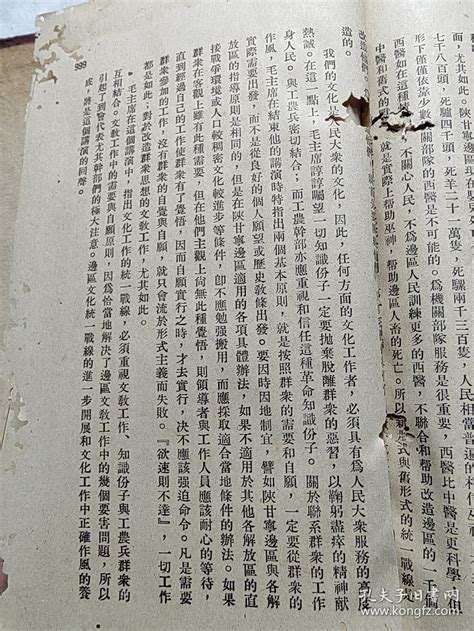 而且
七千八百頭，死驢四千頭，死羊二十一萬隻，死騾兩千三百隻，人民相當普遍
形下僅僅依靠少數機關部隊的西醫是不可能的。爲機關部隊服務是很重要，西醫比中醫是更科學，但
西醫如在這種
，不關心人民，不爲邊區人民訓練更多的西醫，不聯合和幫助改造邊區的一千
中醫和舊式的
，就是實際上幫助巫神，幫助邊區人畜的死亡。所以
形式與舊形式的統一戰線是
改造
造的。
我們的文化
人民大衆的文化，因此，任何方面的文化工作者，必須具有爲人民大衆服務的高度
熱誠。在這一點上，毛主席諄諄囑望一切知識份子一定要拋棄脫離群衆的惡習，以鞠躬盡瘁的精神獻
身人民。與工農兵密切結合，而工農幹部亦應重視和信任這種革命知識份子。關於聯系群衆的工作
作風，毛主席在結束他的講演時特指出兩個基本原則，就是按照群衆的需要和自願，一定要從群衆的
實際需要出發，而不是從良好的個人願望或歷史教條出發。要因時因地制宜，譬如陝甘寧邊區與各解
放區的指導原則是相同的，但是在陝甘寧邊區適用的各項具體辦法，如果不適用於其他各解放區的直
接戰爭環境或人口較稠密文化較進步等條件，卽不應勉强搬用，而應採取適合當地條件的辦法。如果
群衆在客觀上雖有此種需要，但在他們主觀上尙無此種覺悟，則領導者與工作人員應該耐心的等待，
直到經過自己的工作使群衆有了覺悟，因而自願實行之時，才去實行，决不應該强迫命令。凡是需要
群衆參加的工作，沒有群衆的自覺與自願，就只會流於形式主義而失敗。『欲速則不達』，一切工作
都是如此，對於改造群衆思想的文敎工作，尤其如此。
毛主席在這個講演中，指出文化工作的統一戰線，必須重視文敎工作、知識份子與工農兵群衆的
互相結合。文敎工作中的需要與自願原則，因爲恰當地解決了邊區文敎工作中的幾個要害問題，所以
引起了到會代表尤其幹部們的極大注意。邊區文化統一戰線的進一步開展和文化工作中正確作風的養
成，將是這個講演的囘聲。
989
孔夫子旧书网
www.kongfz.com